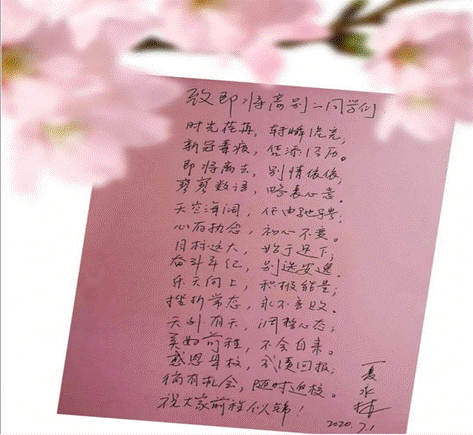 致即将离别的同学们
时光荏苒，转瞬流光，
新冠毒疫，凭添阅历。
即将离去，别情依依，
寥寥数语，略表心意。
天空海阔，任由驰骋；
心存执念，初心不变。
目标远大，始于足下；
奋斗年纪，别选安逸。
乐天向上，积极能量；
挫折常态，永不言败。
天外有天，调整心态；
美好前程，不会自来。
感恩母校，成绩回报；
倘有机会，随时返校。
祝大家前程似锦！
夏永梅
2020.7.1